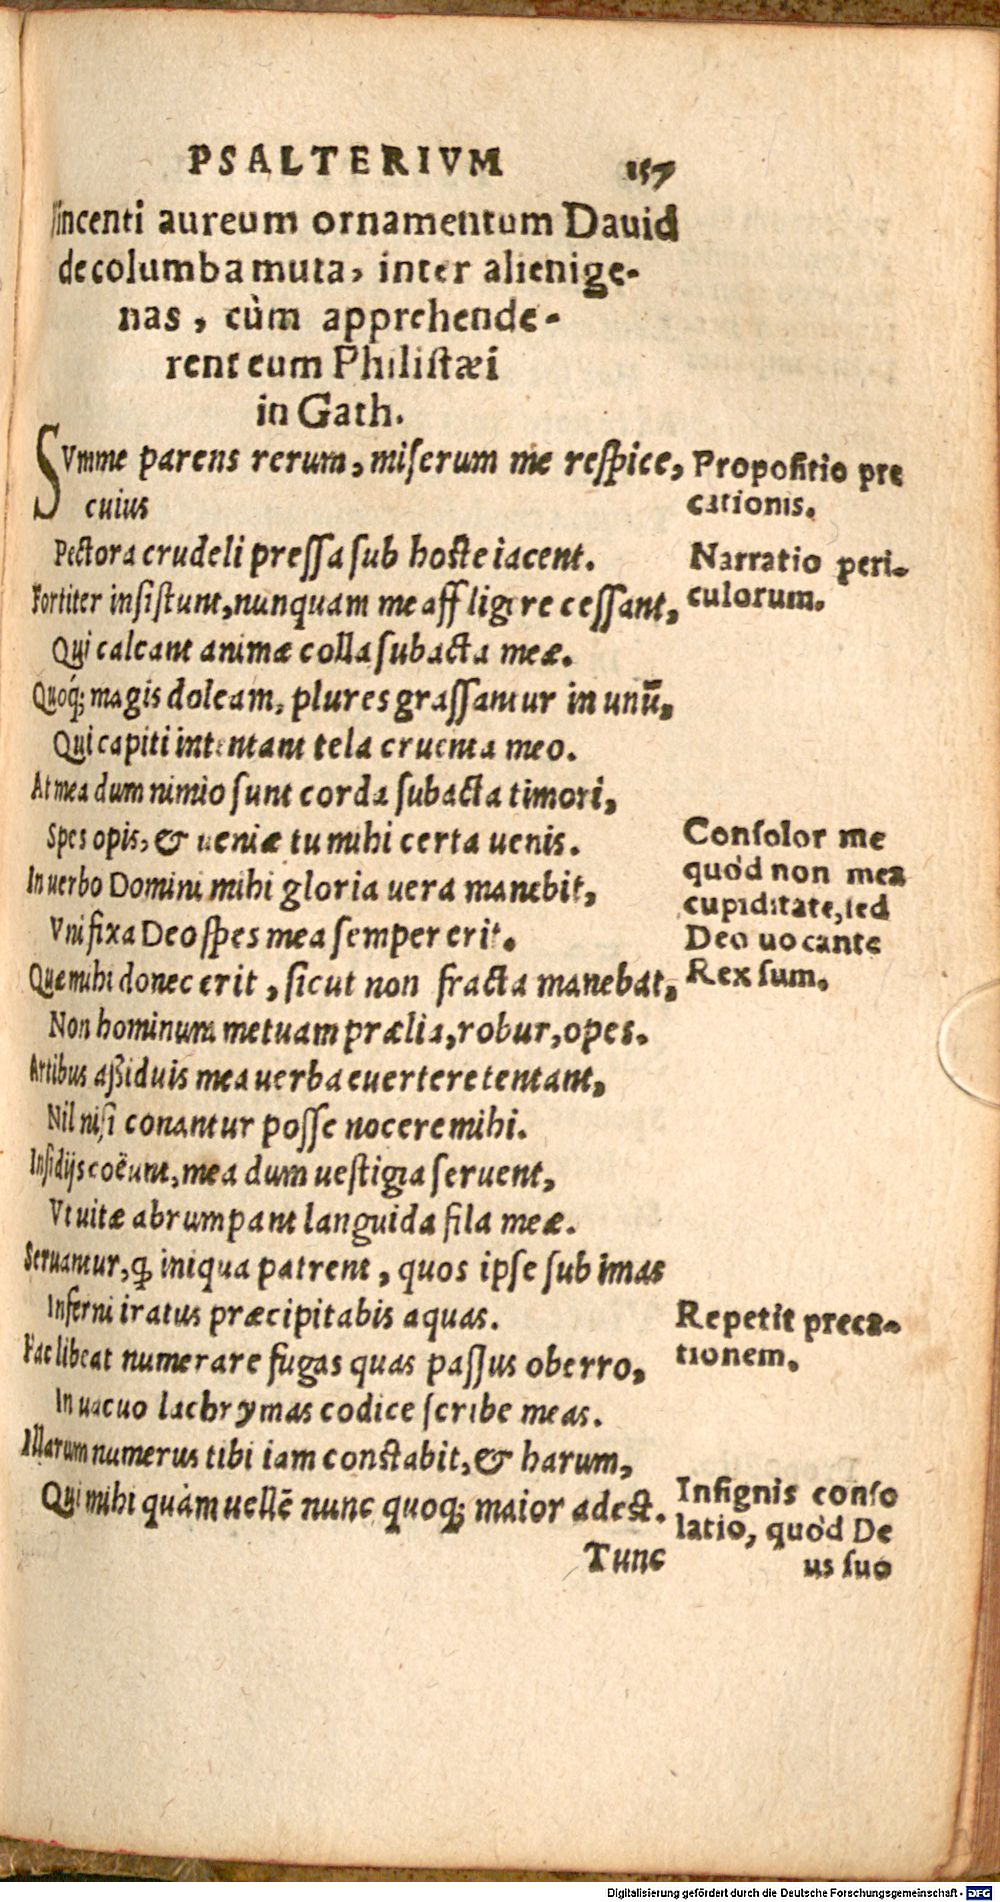 PSALTERIVM 157
Vincenti aureum ornamentum Dauid
de columba muta, inter alienige-
nas, cùm apprehende-
rent eum Philistæi
in Gath.
SVmme parens rerum, miserum me respice,
cuius
Pectora crudeli pressa sub hoste iacent.
Fortiter insistunt, nunquam me affligere cessant,
Qui calcant animæ colla subacta meæ.
Quoq́; magis doleam, plures grassantur in unū,
Qui capiti intentant tela cruenta meo.
At mea dum nimio sunt corda subacta timori,
Spes opis, & ueniæ tu mihi certa uenis.
In uerbo Domini mihi gloria uera manebit,
Vni fixa Deo spes mea semper erit.
Quæ mihi donec erit, sicut non fracta manebat,
Non hominum metuam prælia, robur, opes.
Artibus aßiduis mea uerba euertere tentant,
Nil nisi conantur posse nocere mihi.
Insidijs coëunt, mea dum uestigia seruent,
Vt uitæ abrumpant languida fila meæ.
Seruantur, ꝙ iniqua patrent, quos ipse sub imas
Inferni iratus præcipitabis aquas.
Fac libeat numerare fugas quas passus oberro,
In uacuo lachrymas codice scribe meas.
Illarum numerus tibi iam constabit, & harum,
Qui mihi quàm uellē nunc quoq; maior adest.
Tunc
Propositio pre
cationis.
Narratio peri-
culorum.
Consolor me
quòd non mea
cupiditate, sed
Deo uocante
Rex sum.
Repetit preca-
tionem.
Insignis conso
latio, quòd De
us suo
Digitalisierung gefördert durch die Deutsche Forschungsgemeinschaft - DFG